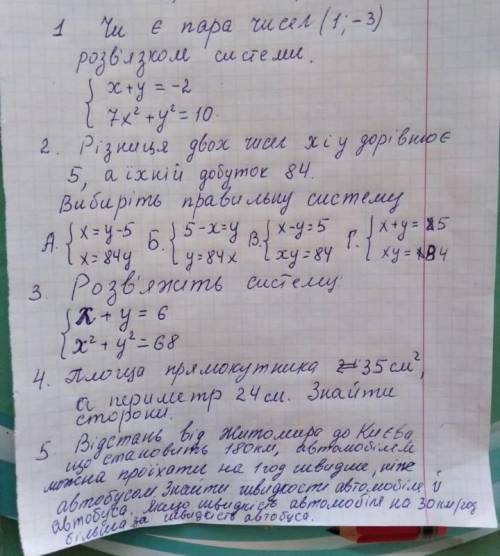 1 Чи є пара чисел (1; -3)
розв'язком системи.
{ x+y = -2
7x² + y² = 10.
2. Різниця двох чисел x і y дорівнює
5, а їхній добуток 84.
Виберіть правильну систему
А. { x = y-5 Б. { 5-x=y В. { x-y=5 Г. { x+y=5
x = 84y y=84x xy=84 xy=84
3. Розв'яжіть систему
{ x + y = 6
x² + y² = 68
4. Площа прямокутника 35 см²,
а периметр 24 см. Знайти
сторони.
5. Відстань від Житомира до Києва,
що становить 180 км, автомобілем
можна проїхати на 1 год швидше, ніж
автобусом. Знайти швидкості автомобіля й
автобуса. Якщо швидкість автомобіля на 30 км/год
більша за швидкість автобуса.